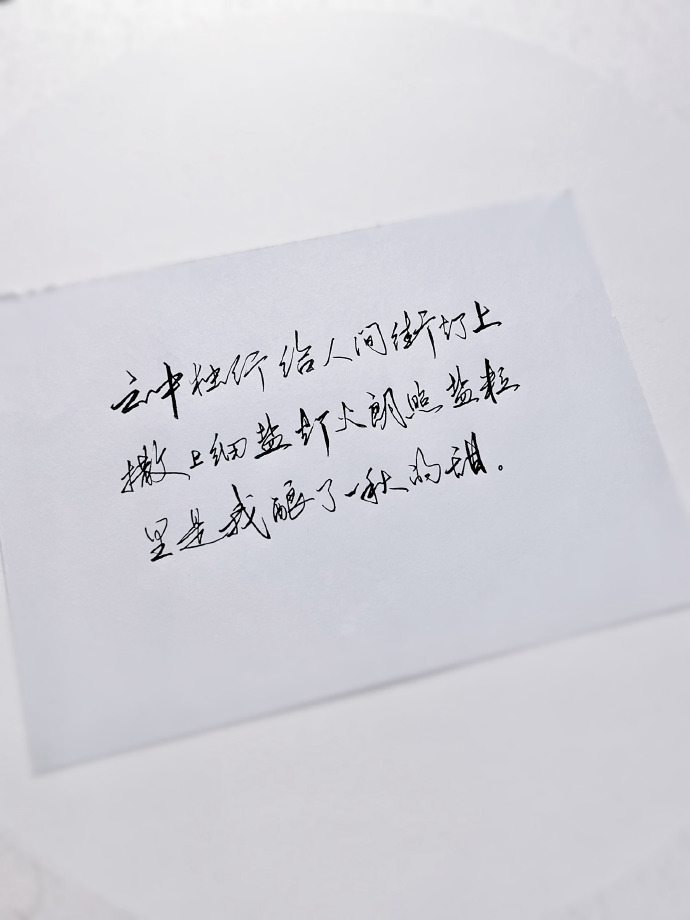 云中独行给人间街灯上
撒上细盐灯火朗照盐粒
里是我酿了一秋的甜。